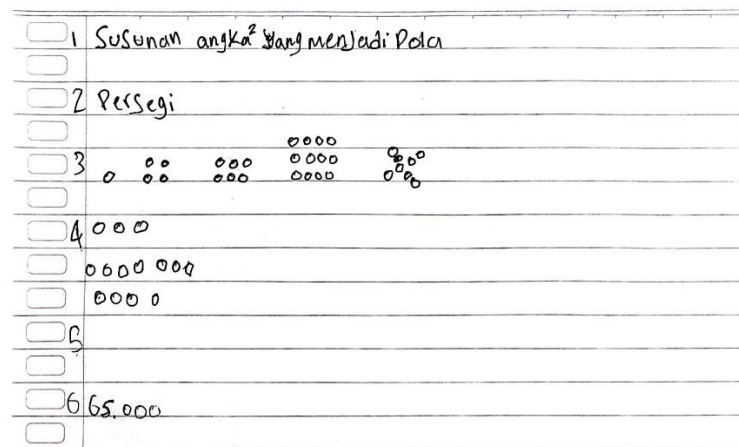 1 Susunan angka² yang menjadi Pola
2 Persegi
3
4
5
6 65.000